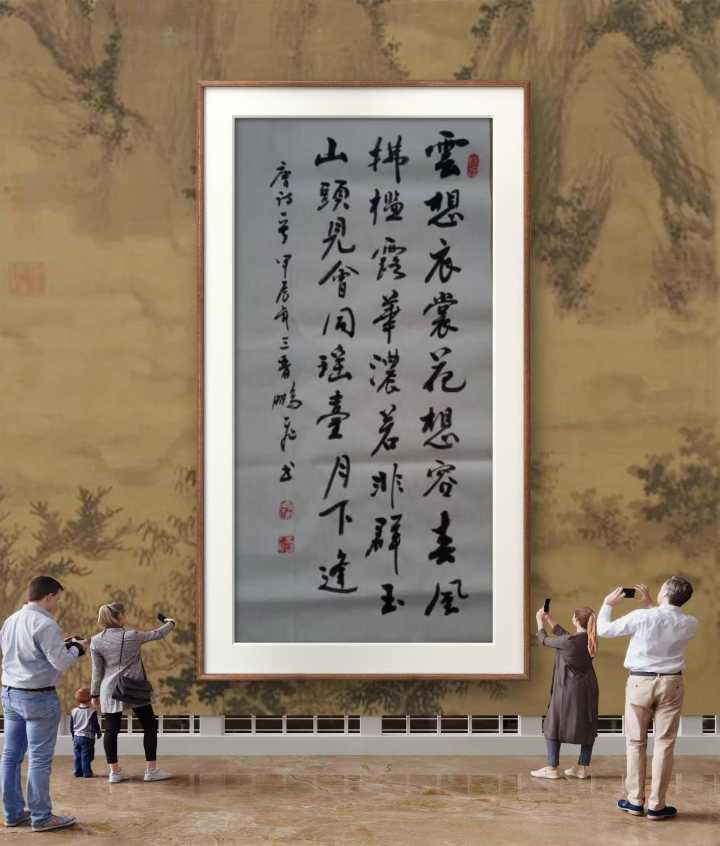 雲想衣裳花想容春風
拂檻露華濃若非群玉
山頭見會向瑤臺月下逢
唐诗一首甲辰年三晋鵬飛书